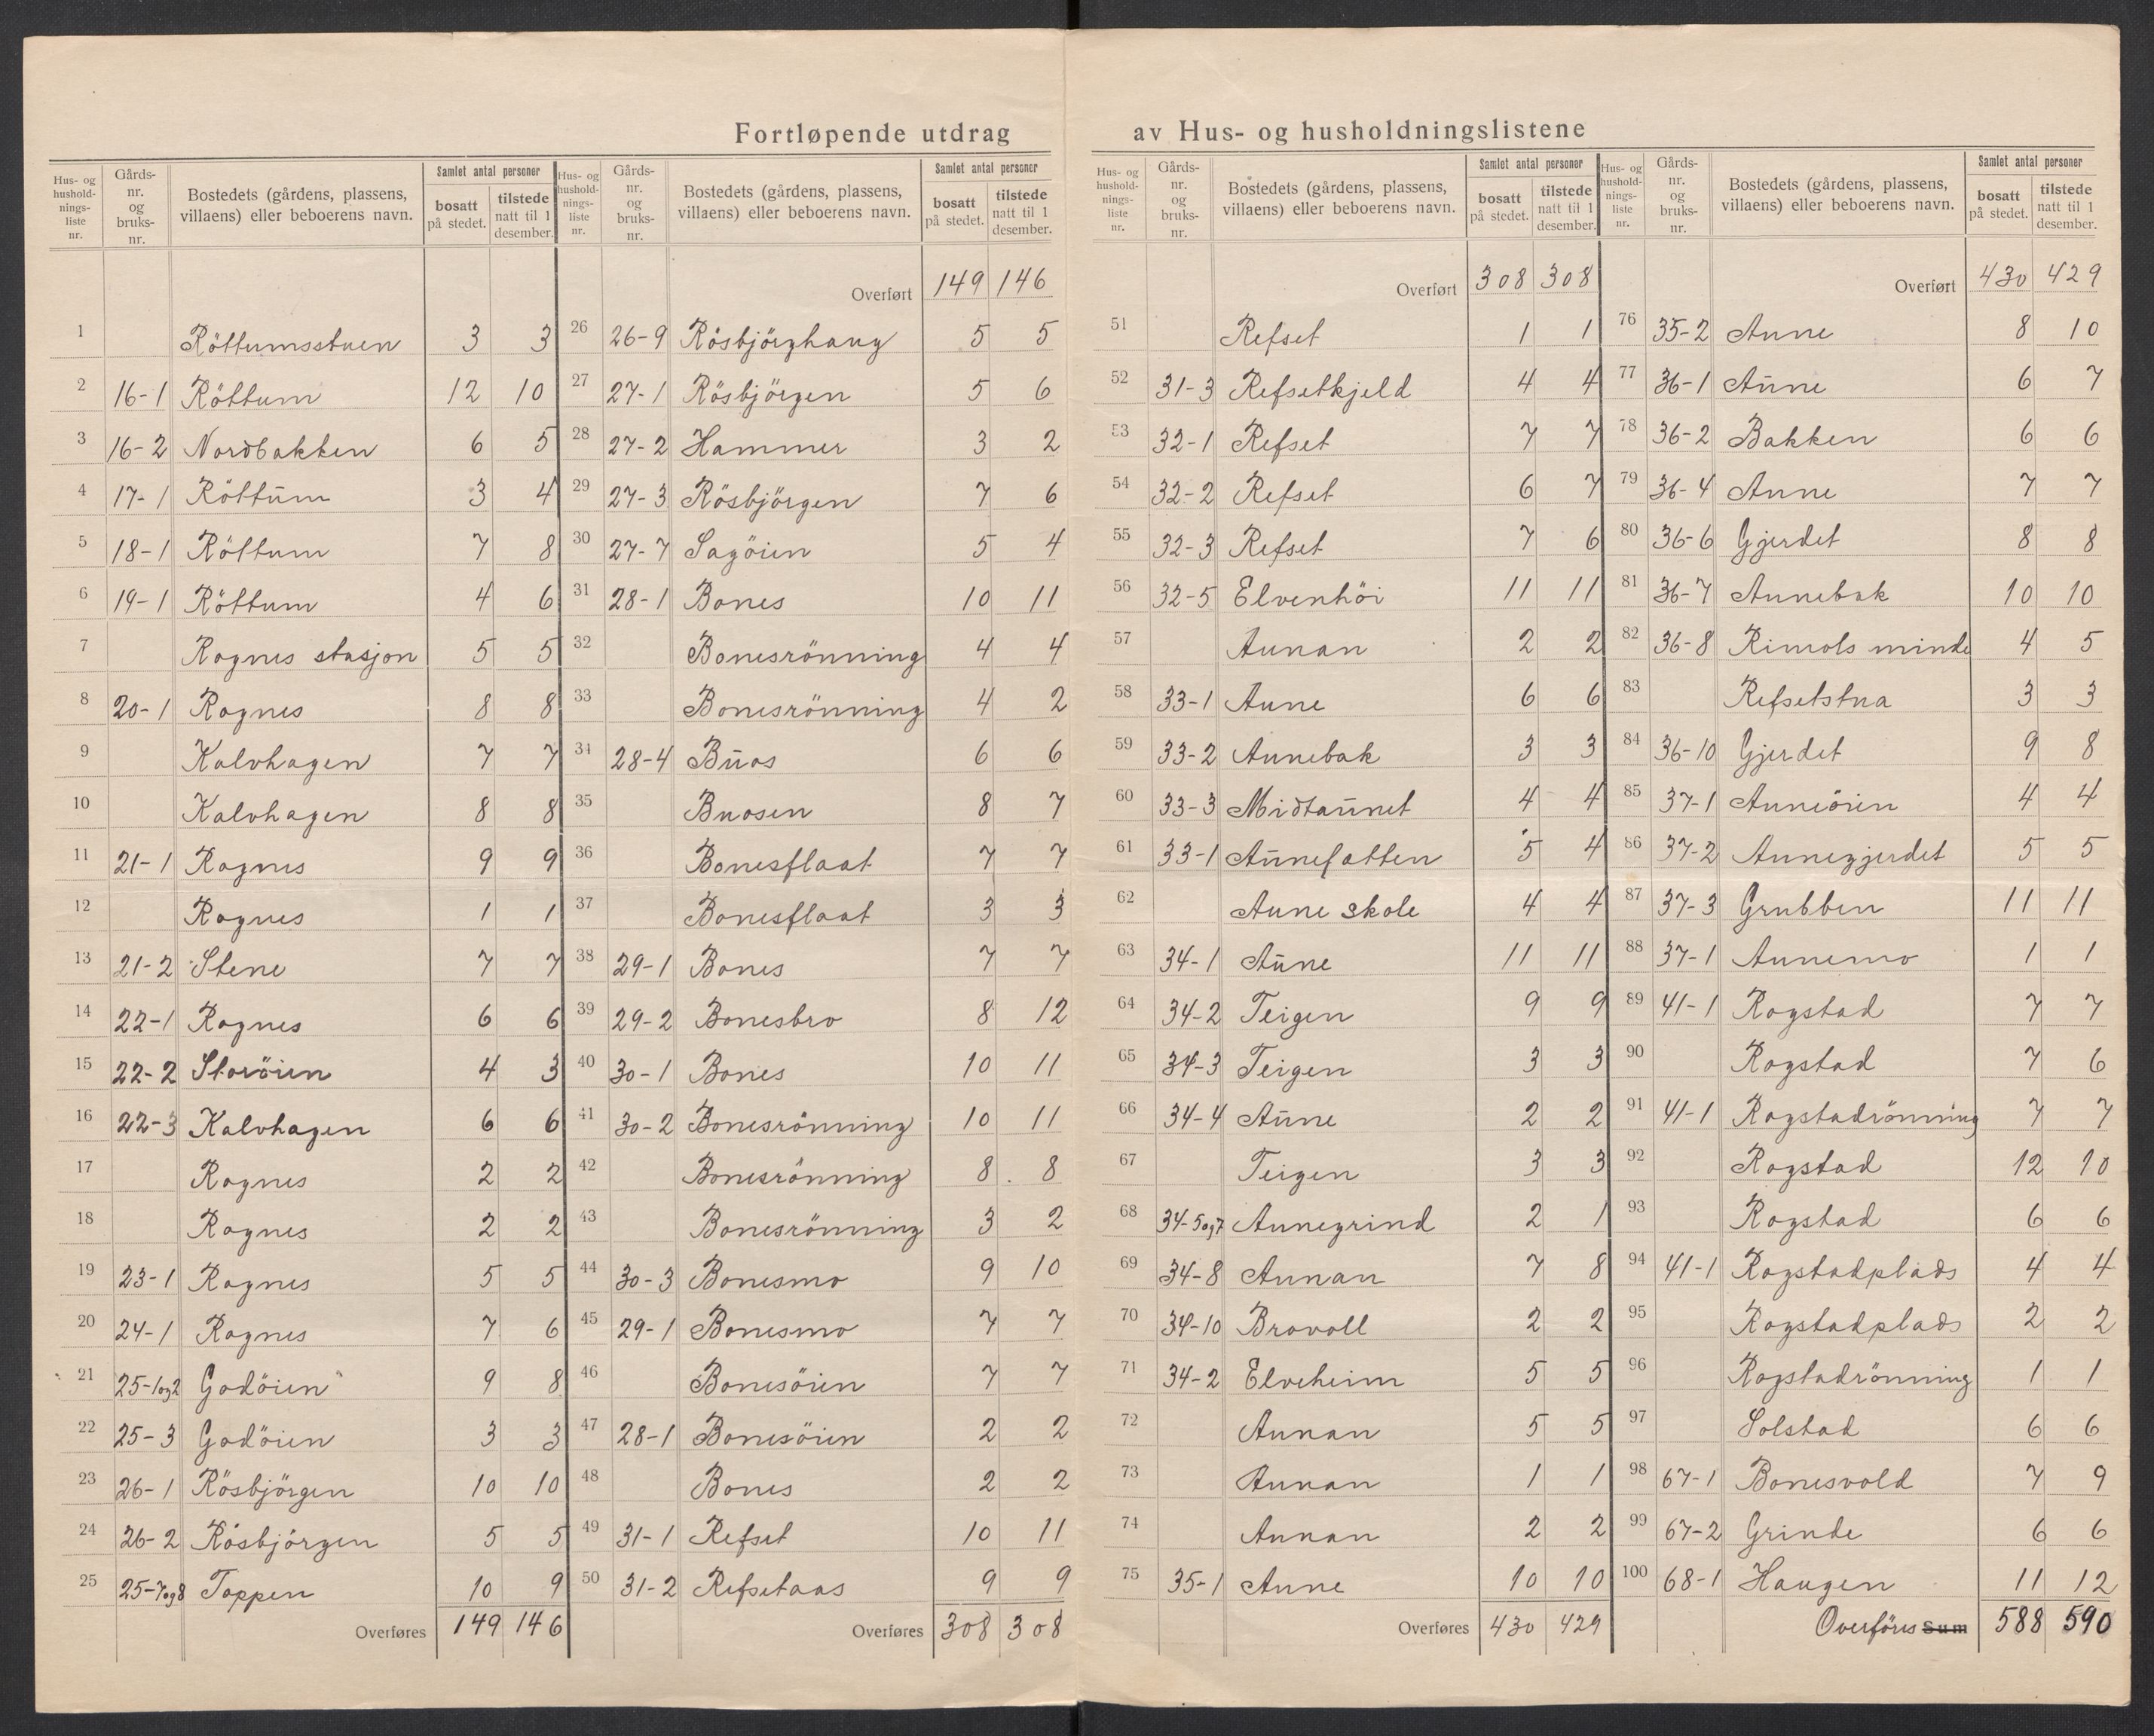 Fortløpende utdrag av Hus- og husholdningslistene
Hus- og husholdningsliste nr. | Gårds-nr. og bruks-nr. | Bostedets (gårdens, plassens, villaens) eller beboerens navn. | Samlet antal personer bosatt på stedet. | tilstede natt til 1 desember.
1 Röttumsstuen 3 3
2 16-1 Röttum 12 10
3 16-2 Nordbakken 6 5
4 17-1 Röttum 3 4
5 18-1 Röttum 7 8
6 19-1 Röttum 4 6
7 Rognes stasjon 5 5
8 20-1 Rognes 8 8
9 Kalvhagen 7 7
10 Kalvhagen 8 8
11 21-1 Rognes 9 9
12 Rognes 1 1
13 21-2 Stene 7 7
14 22-1 Rognes 6 6
15 22-2 Storöien 4 3
16 22-3 Kalvhagen 6 6
17 Rognes 2 2
18 Rognes 2 2
19 23-1 Rognes 5 5
20 24-1 Rognes 7 6
21 25-1og2 Godöien 9 8
22 25-3 Godöien 3 3
23 26-1 Rösbjörgen 10 10
24 26-2 Rösbjörgen 5 5
25 25-7og8 Toppen 10 9
Overføres 149 146
Hus- og husholdningsliste nr. | Gårds-nr. og bruks-nr. | Bostedets (gårdens, plassens, villaens) eller beboerens navn. | Samlet antal personer bosatt på stedet. | tilstede natt til 1 desember.
Overført 149 146
26 26-9 Rösbjörghaug 5 5
27 27-1 Rösbjörgen 5 6
28 27-2 Hammer 3 2
29 27-3 Rösbjörgen 7 6
30 27-7 Sagöien 5 4
31 28-1 Bones 10 11
32 Bonesrönning 4 4
33 Bonesrönning 4 2
34 28-4 Buos 6 6
35 Buosen 8 7
36 Bonesflaat 7 7
37 Bonesflaat 3 3
38 29-1 Bones 7 7
39 29-2 Bonesbro 8 12
40 30-1 Bones 10 11
41 30-2 Bonesrönning 10 11
42 Bonesrönning 8 8
43 Bonesrönning 3 2
44 30-3 Bonesmo 9 10
45 29-1 Bonesmo 7 7
46 Bonesöien 7 7
47 28-1 Bonesöien 2 2
48 Bones 2 2
49 31-1 Refset 10 11
50 31-2 Refsetaas 9 9
Overføres 308 308
Hus- og husholdningsliste nr. | Gårds-nr. og bruks-nr. | Bostedets (gårdens, plassens, villaens) eller beboerens navn. | Samlet antal personer bosatt på stedet. | tilstede natt til 1 desember.
Overført 308 308
51 Refset 1 1
52 31-3 Refsetkjeld 4 4
53 32-1 Refset 7 7
54 32-2 Refset 6 7
55 32-3 Refset 7 6
56 32-5 Elvenhöi 11 11
57 Aunan 2 2
58 33-1 Aune 6 6
59 33-2 Aunebak 3 3
60 33-3 Midtaunet 4 4
61 33-1 Aunefatten 5 4
62 Aune skole 4 4
63 34-1 Aune 11 11
64 34-2 Teigen 9 9
65 34-3 Teigen 3 3
66 34-4 Aune 2 2
67 Teigen 3 3
68 34-5og7 Aunegrind 2 1
69 34-8 Aunan 7 8
70 34-10 Brovoll 2 2
71 34-2 Elveheim 5 5
72 Aunan 5 5
73 Aunan 1 1
74 Aunan 2 2
75 35-1 Aune 10 10
Overføres 430 429
Hus- og husholdningsliste nr. | Gårds-nr. og bruks-nr. | Bostedets (gårdens, plassens, villaens) eller beboerens navn. | Samlet antal personer bosatt på stedet. | tilstede natt til 1 desember.
Overført 430 429
76 35-2 Aune 8 10
77 36-1 Aune 6 7
78 36-2 Bakken 6 6
79 36-4 Aune 7 7
80 36-6 Gjerdet 8 8
81 36-7 Aunebak 10 10
82 36-8 Rimols minde 4 5
83 Refsetstua 3 3
84 36-10 Gjerdet 9 8
85 37-1 Auneöien 4 4
86 37-2 Aunegjerdet 5 5
87 37-3 Grubben 11 11
88 37-1 Aunemo 1 1
89 41-1 Rogstad 7 7
90 Rogstad 7 6
91 41-1 Rogstadrönning 7 7
92 Rogstad 12 10
93 Rogstad 6 6
94 41-1 Rogstadplads 4 4
95 Rogstadplads 2 2
96 Rogstadrönning 1 1
97 Solstad 6 6
98 67-1 Bonesvold 7 9
99 67-2 Grinde 6 6
100 68-1 Haugen 11 12
Overföres Sum 588 590